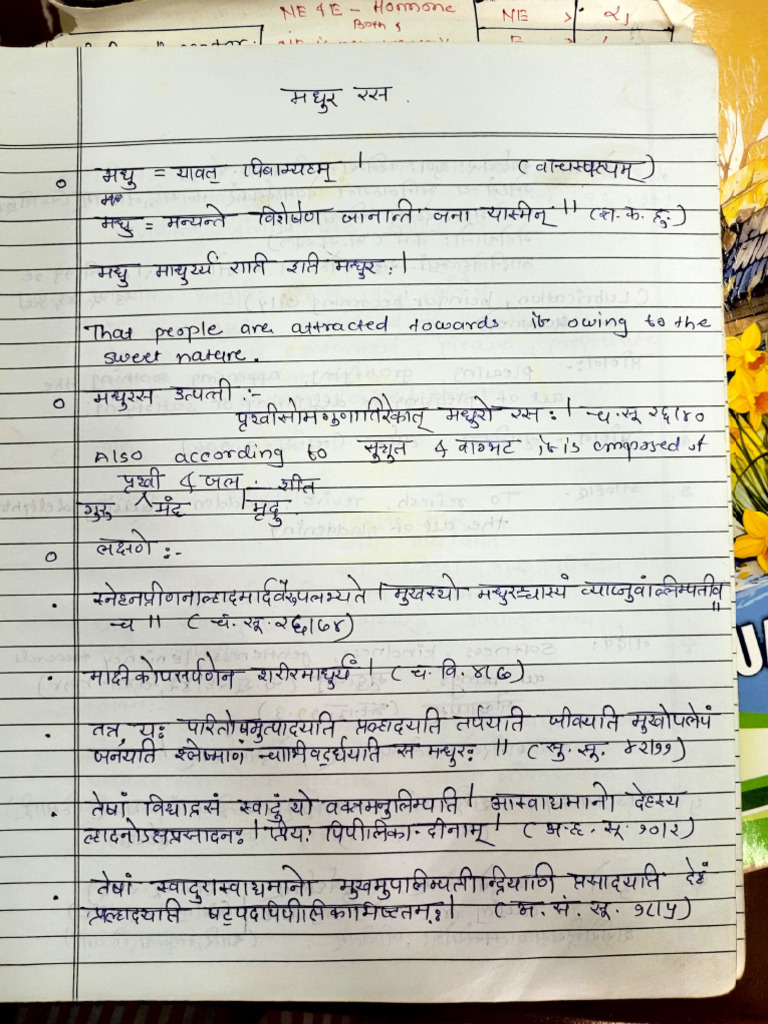 NE & E - Hormone
Both &
NE > २,
मधुर रस .
मधु = यावत् पिबाम्यहम् । ( वाचस्पत्यम् )
मधु = मन्यन्ते विशेषेण जानान्ति जना यास्मिन् " ( श. क. द्रु. )
मधु माधुर्य्यं राति इति मधुर: ।
That people are attracted towards it owing to the
sweet nature.
मधुरस उत्पत्ती :-
पृथ्वीसोमगुणातिरेकात् मधुरो रस: । च. सू २६।४०
Also according to सुश्रुत & वाग्भट , it is composed of
पृथ्वी & जल : शीत
गुरु मंद मृदु
लक्षणे :-
स्नेहनप्रीणनाल्हादमार्दवैरुपलभ्यते । मुखस्थो मधुरश्चास्यं व्याप्नुवांल्लिम्पतीव
च " ( च. सू. २६।७४ )
माक्षीकोपसर्पणेन शरीरमाधुर्यं । ( च. वि. ४।७ )
तत्र, य: परितोषमुत्पादयति प्रल्हादयति तर्पयति जीवयति मुखोपलेपं
जनयति श्लेष्माणं चाभिवर्द्धयति स मधुर: " ( सु. सू. ४२।११ )
तेषां विद्याद्रसं स्वादुं यो वक्त्रमनुलिम्पति । आस्वाद्यमानो देहस्य
ल्हादनोऽक्षप्रसादन: । प्रिय: पिपीलिका-दीनाम् । ( अ. ह. सू. १०।२ )
तेषां स्वादुरास्वाद्यमानो मुखमुपालिम्पतीन्द्रियाणि प्रसादयति देहं
प्रल्हादयति षट्पदपिपीलिकाभिष्टतम्: । ( अ. सं. सू. १८।५ )